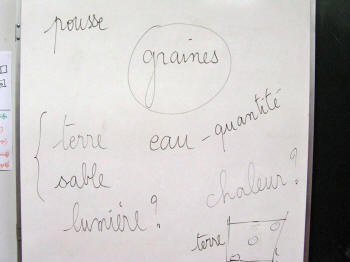 pousse
graines
terre eau - quantité
sable
chaleur?
lumière?
terre